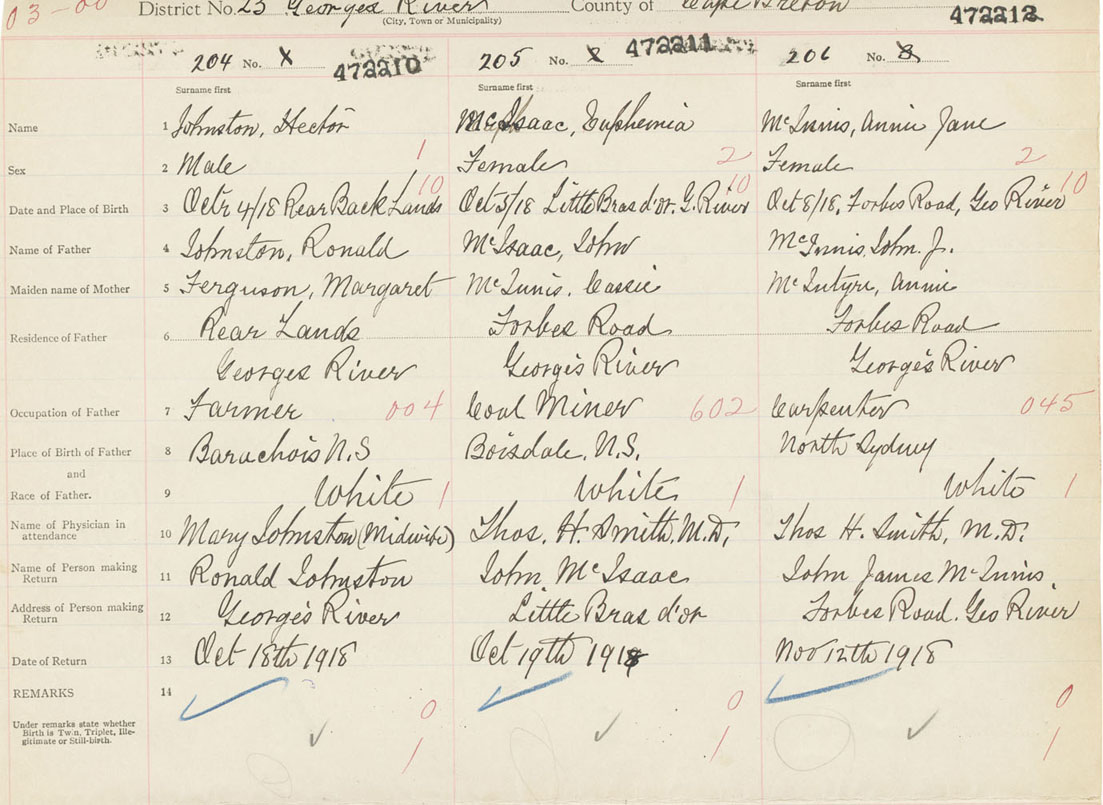 03-00 District No. 23 Georges River County of Cape Breton
(City, Town or Municipality)
472212
204 No. X 472210 205 No. 472211 206 No. 8
Surname first Surname first Surname first
Name 1 Johnston, Hector McIsaac, Euphemia McInnis, Annie Jane
Sex 2 Male 1 Female 2 Female 2
Date and Place of Birth 3 Octr 4/18 Rear Back Lands 10 Oct 5/18 Little Bras d'or. G. River 10 Oct 8/18, Forbes Road, Geo River 10
Name of Father 4 Johnston, Ronald McIsaac, John McInnis, John. J.
Maiden name of Mother 5 Ferguson, Margaret McInnis, Cassie McIntyre, Annie
Residence of Father 6 Rear Lands Forbes Road Forbes Road
Georges River George's River George's River
Occupation of Father 7 Farmer 004 Coal Miner 602 Carpenter 045
Place of Birth of Father 8 Barachois N.S Boisdale, N.S. North Sydney
and
Race of Father. 9 White 1 White 1 White 1
Name of Physician in attendance 10 Mary Johnston (Midwife) Thos. H. Smith, M.D. Thos H. Smith, M.D.
Name of Person making Return 11 Ronald Johnston John McIsaac John James McInnis
Address of Person making Return 12 George's River Little Bras d'or Forbes Road. Geo River
Date of Return 13 Oct 18th 1918 Oct 19th 1918 Nov 12th 1918
REMARKS 14
0 0 0
Under remarks state whether
Birth is Twin, Triplet, Ille-
gitimate or Still-birth.
1 1 1